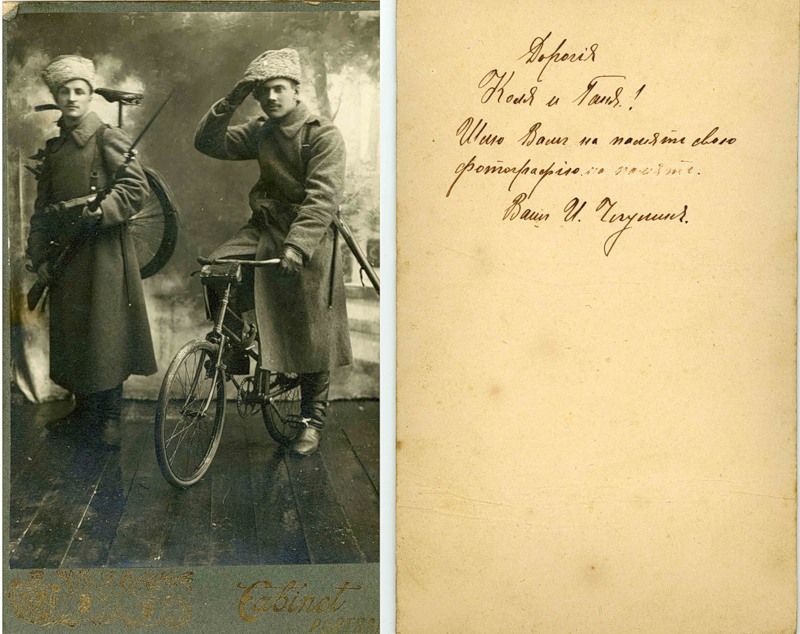 Cabinet
Дорогія
Коля и Таня!
Шлю Вамъ на память свою
фотографію на память.
Вашъ И.